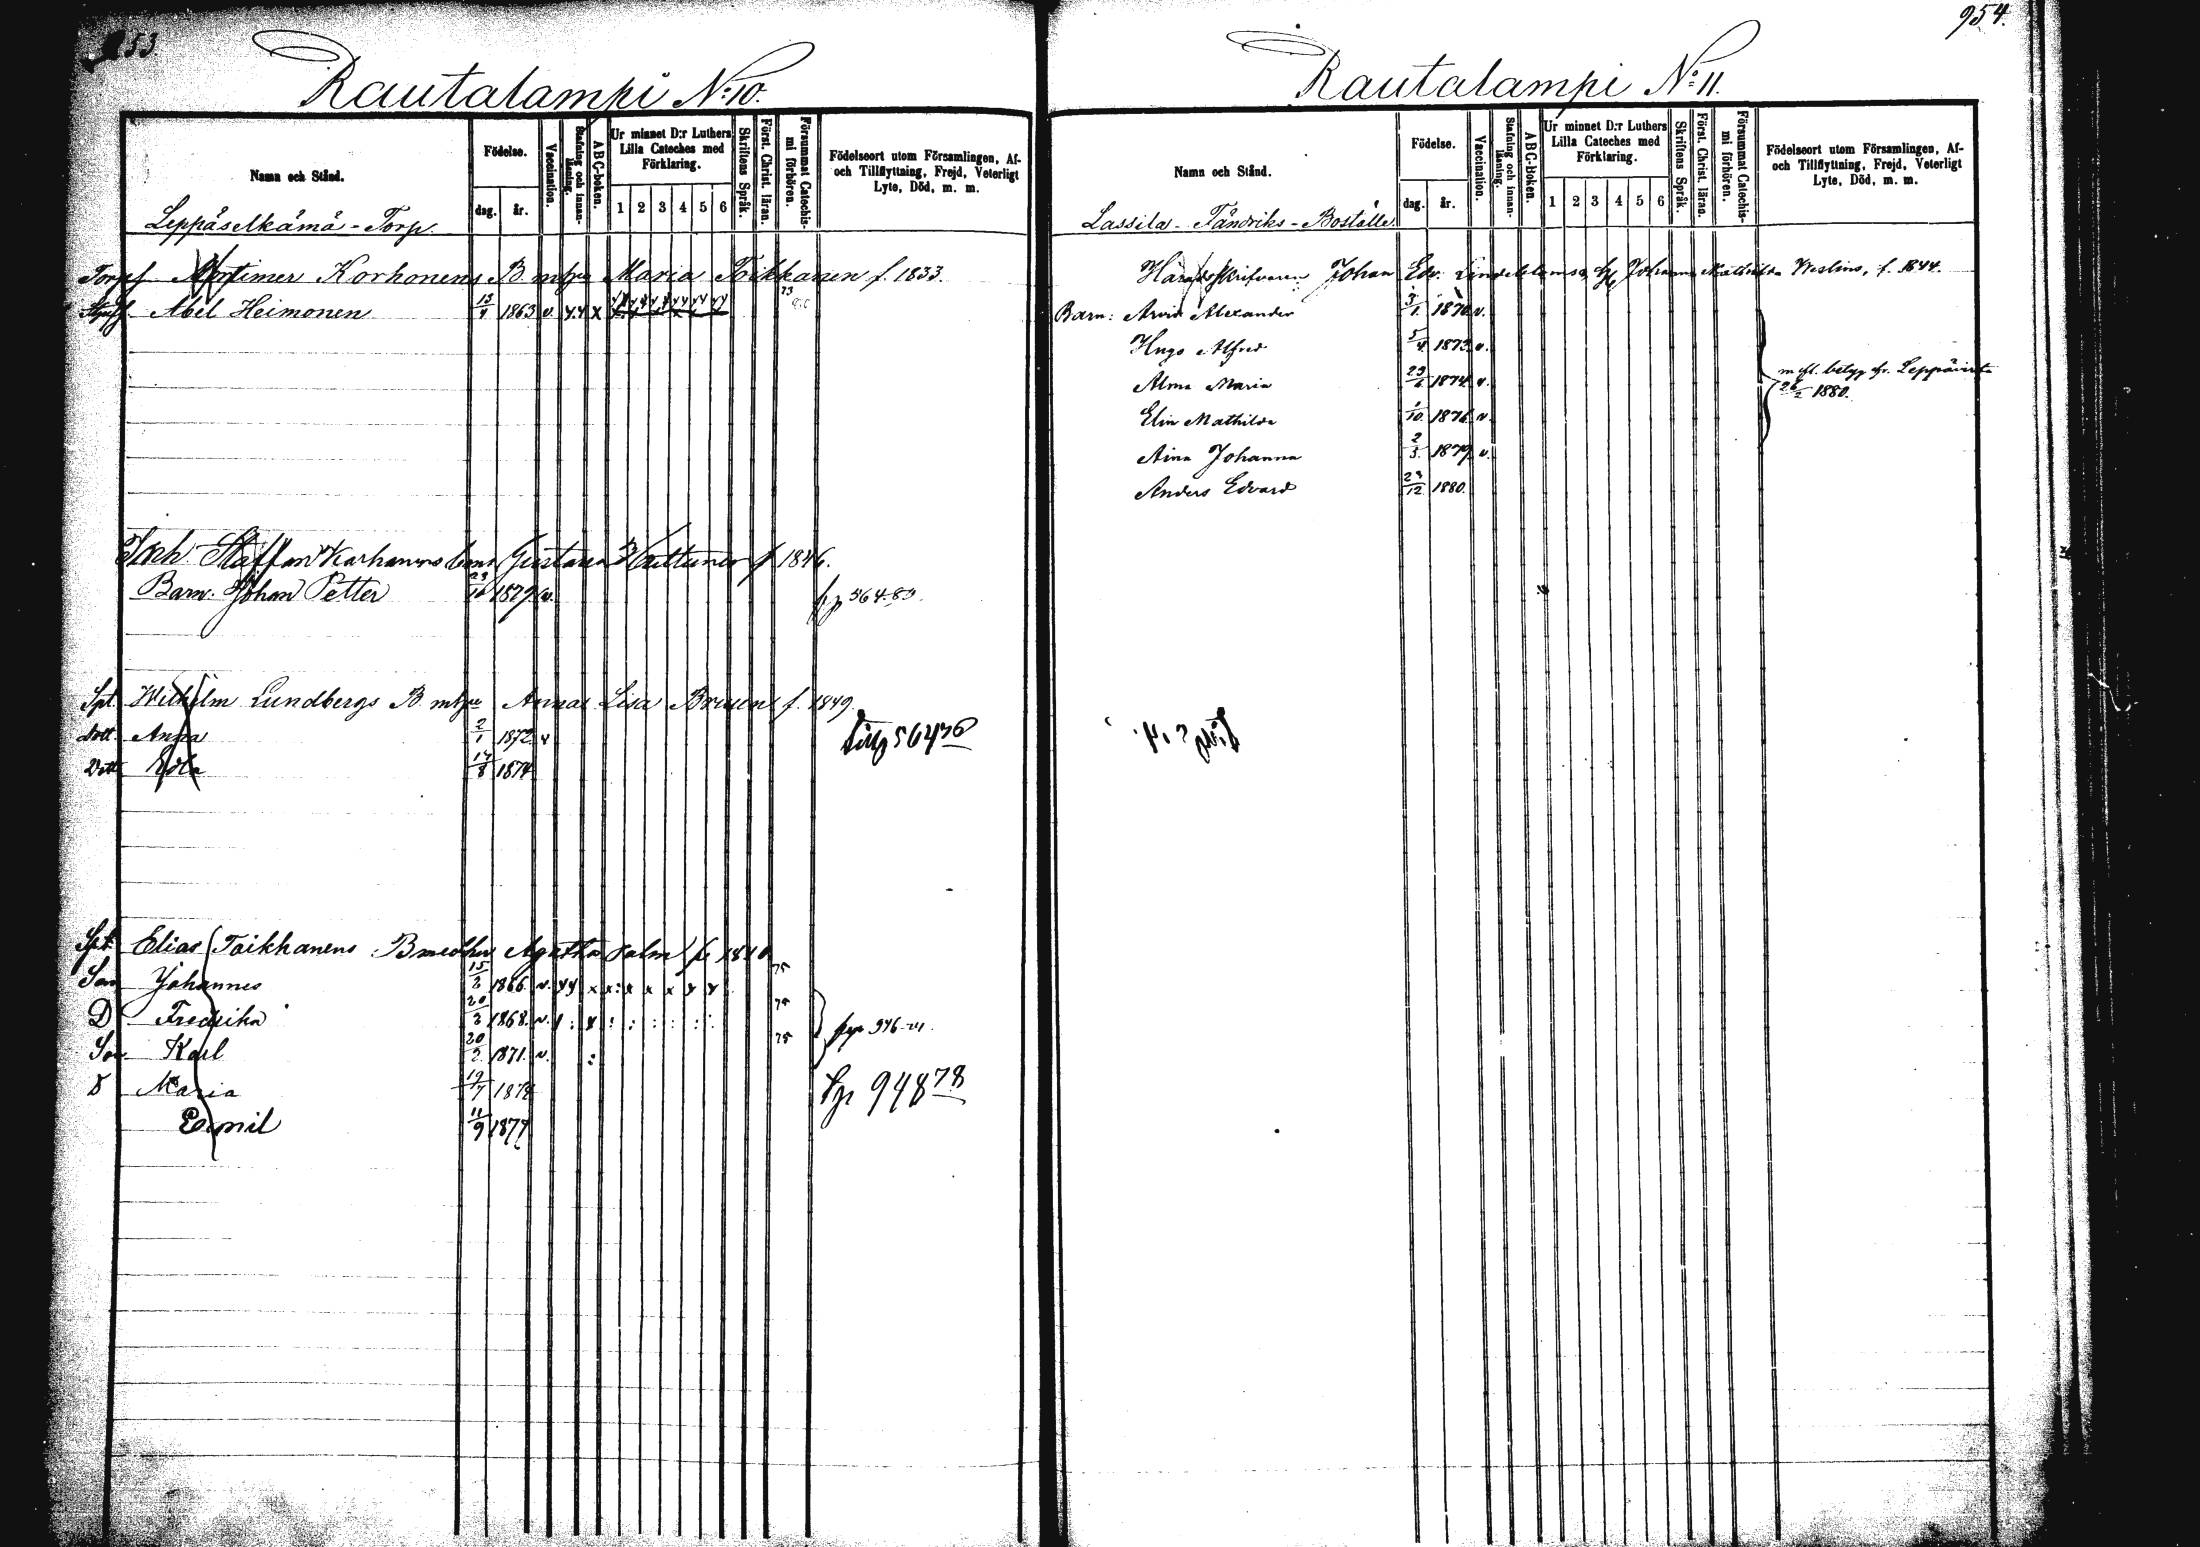 953.
Rautalampi N:o 10.
Namn och Stånd.
Födelse.
dag. år.
Vaccination.
Stafning och innanläsning.
ABC-boken.
Ur minnet D:r Luthers Lilla Cateches med Förklaring.
1 2 3 4 5 6
Skriftens Språk.
Först. Christ. läran.
Försummat Catechismi förhören.
Födelseort utom Församlingen, Af- och Tillflyttning, Frejd, Veterligt Lyte, Död, m. m.
Leppäselkämä - Torp.
Mortimer Korhonens B m hu Maria Toikkanen f. 1833. 73
Abel Heimonen 13/4 1863 v. y.y x
Inh. Staffan Karhunens Gustava f 1846.
Barn. Johan Petter 23/10 1879. v. 564.80.
Spt. Wilhelm Lundbergs B. m hu Anna Lisa f. 1849.
Dott. Anna 2/1 1872 v 564 76
Dott Edla 17/8 1874
Spt. Elias Toikkanens B med hu Agatha Salm f. 1840
Son Johannes 15/2 1866. v. yy x x : x x x x y 75
D Fredrika 20/3 1868. v. 75
Son Karl 20/2 1871. v. : 75
pgr 946-
D Maria 19/7 1874 948 78
Emil 11/9 1877
954.
Rautalampi N:o 11.
Namn och Stånd.
Födelse.
dag. år.
Vaccination.
Stafning och innanläsning.
ABC-Boken.
Ur minnet D:r Luthers Lilla Cateches med Förklaring.
1 2 3 4 5 6
Skriftens Språk.
Först. Christ. läran.
Försummat Catechismi förhören.
Födelseort utom Församlingen, Af- och Tillflyttning, Frejd, Veterligt Lyte, Död, m. m.
Lassila - Fändriks - Boställe.
Häradsskrifvaren Johan Edv. Lindebloms Johanna Mathilda Weslins, f. 1844.
Barn: Arvid Alexander 3/1. 1870. v.
Hugo Alfred 5/4 1873. v.
Alma Maria 23/6 1874. v.
m fl. betyg fr. Leppävirta
26/2 1880.
Elin Mathilda 1/10. 1876. v.
Aina Johanna 2/3. 1879. v.
Anders Edvard 23/12 1880.